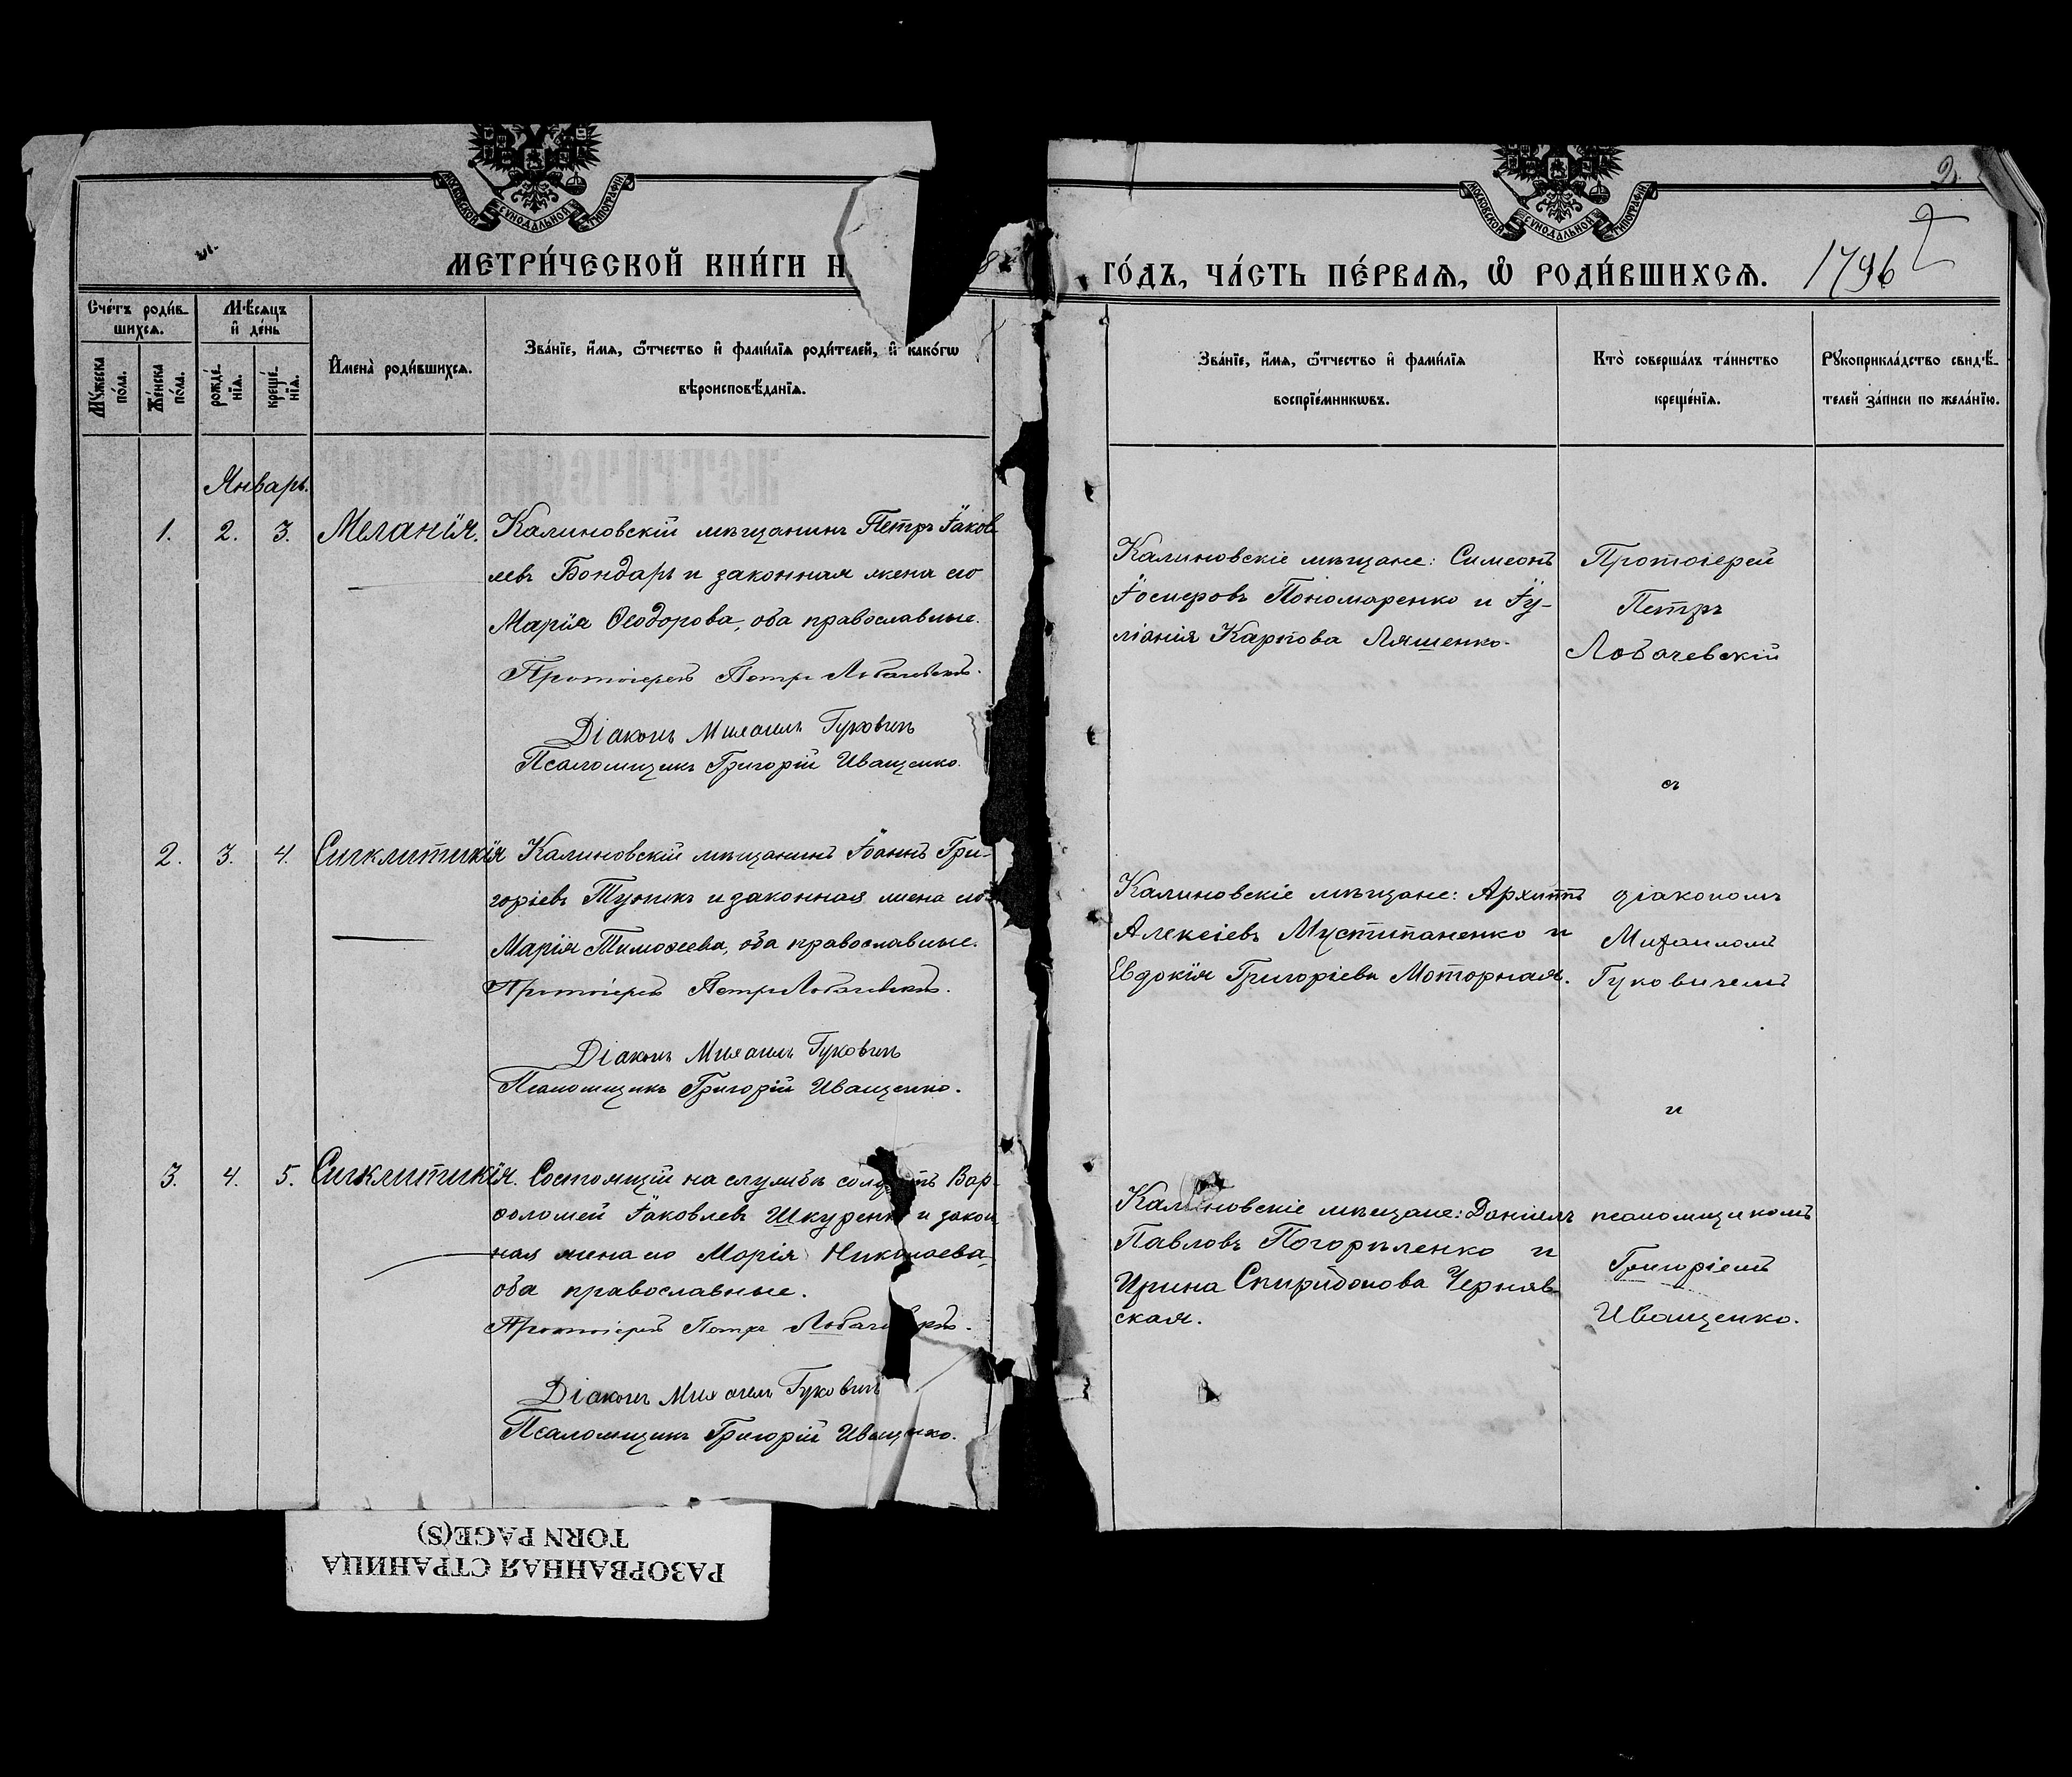 МОСКОВСКОЙ СѴНОДАЛЬНОЙ ТИПОГРАФІИ
МОСКОВСКОЙ СѴНОДАЛЬНОЙ ТИПОГРАФІИ
2.
МЕТРИ́ЧЕСКОЙ КНИ́ГИ Н 8
ГО́ДЪ, ЧА́СТЬ ПЕ́РВАѦ, Ѡ҆ РОДИ́ВШИХСѦ. 1796 2
Сче́тъ роди́в-
шихсѧ.
Мѣ́сѧцъ
и҆ де́нь
Мꙋ́жеска
по́ла.
Же́нска
по́ла.
рожде́-
нїѧ.
креще́-
нїѧ.
И҆мена̀ роди́вшихсѧ.
Зва́нїе, и҆́мѧ, ѻ҆́тчество и҆ фами́лїѧ роди́телей, и҆ како́гѡ
вѣроисповѣ́данїѧ.
Зва́нїе, и҆́мѧ, ѻ҆́тчество и҆ фами́лїѧ
воспрїе́мникѡвъ.
Кто̀ соверша́лъ та́инство
креще́нїѧ.
Рꙋкоприкла́дство свидѣ́-
телей за́писи по жела́нїю.
Январь.
1. 2. 3. Меланія. Калиновскій мѣщанинъ Петръ Іаков-
левъ Бондарь и законная жена его
Марія Ѳеодорова, оба православные.
Протоіерей Петръ Лобачевскій.
Діаконъ Михаилъ Гуковичъ
Псаломщикъ Григорій Иващенко.
Калиновскіе мѣщане: Симеонъ
Іосифовъ Пономаренко и Іу-
ліанія Карпова Ляшенко.
Протоіерей
Петръ
Лобачевскій
съ
2. 3. 4. Сигклитикія Калиновскій мѣщанинъ Іоаннъ Гри-
горіевъ Тупикъ и законная жена его
Марія Тимоѳеева, оба православные.
Протоіерей Петръ Лобачевскій.
Діаконъ Михаилъ Гуковичъ
Псаломщикъ Григорій Иващенко.
Калиновскіе мѣщане: Архиппъ
Алексіевъ Мустипаненко и
Евдокія Григоріева Моторная.
діакономъ
Михаиломъ
Гуковичемъ
и
3. 4. 5. Сигклитикія. Состоящій на службѣ солдатъ Вар-
ѳоломей Іаковлевъ Шкуренко и закон
ная жена его Марія Николаева,
оба православные.
Протоіерей Петръ Лобачевскій.
Діаконъ Михаилъ Гуковичъ
Псаломщикъ Григорій Иващенко.
Калиновскіе мѣщане: Даніилъ
Павловъ Погорѣленко и
Ирина Спиридонова Черняв-
ская.
псаломщикомъ
Григоріемъ
Иващенко.
РАЗОРВАННАЯ СТРАНИЦА
TORN PAGE(S)